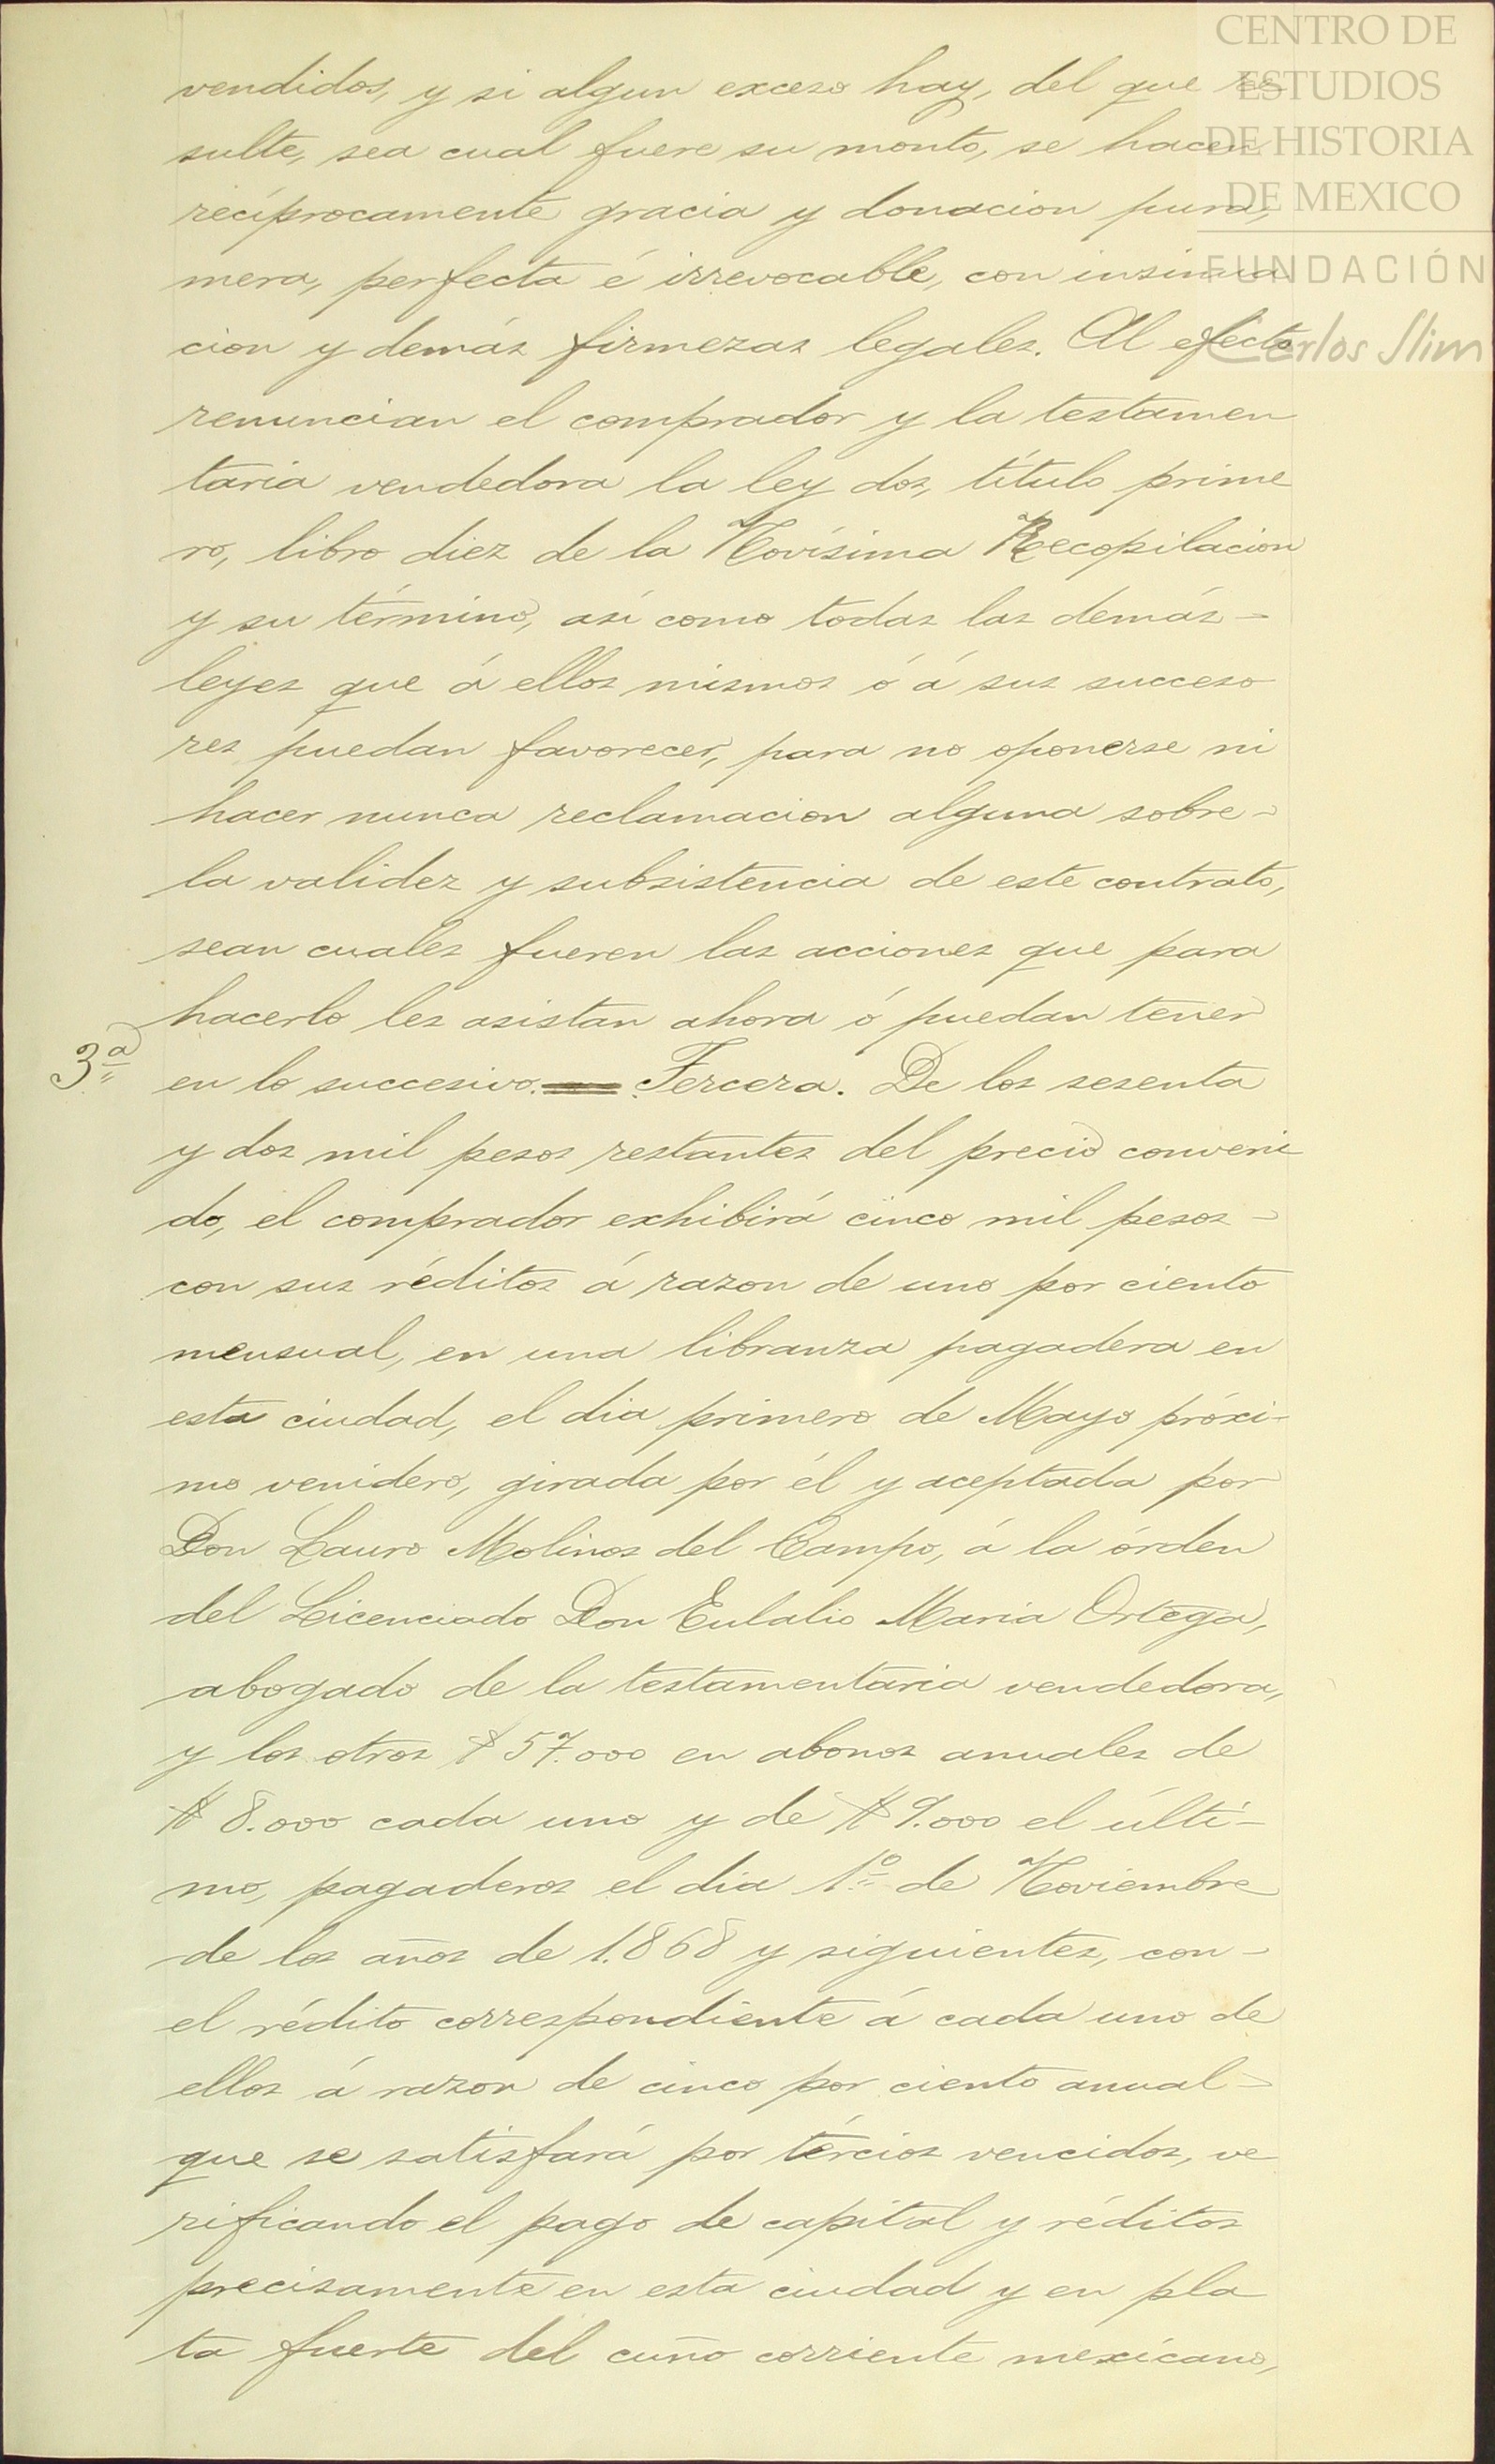 CENTRO DE
ESTUDIOS
DE HISTORIA
DE MEXICO
FUNDACIÓN
Carlos Slim
vendidos, y si algun exceso hay, del que re
sulte, sea cual fuere su monto, se hacen
recíprocamente gracia y donacion pura,
mera, perfecta é irrevocable, con insinua
cion y demás firmezas legales. Al efecto
renuncian el comprador y la testamen
taria vendedora la ley dos, título prime
ro, libro diez de la Novísima Recopilacion
y su término, así como todas las demás-
leyes que á ellos mismos ó á sus succeso
res puedan favorecer, para no oponerse ni
hacer nunca reclamacion alguna sobre-
la validez y subsistencia de este contrato,
sean cuales fueren las acciones que para
hacerlo les asistan ahora ó puedan tener
3ª en lo succesivo.= Tercera. De los sesenta
y dos mil pesos restantes del precio conveni
do, el comprador exhibirá cinco mil pesos-
con sus réditos á razon de uno por ciento
mensual, en una libranza pagadera en
esta ciudad, el dia primero de Mayo próxi-
mo venidero, girada por él y aceptada por
Don Lauro Molinos del Campo, á la órden
del Licenciado Don Eulalio Maria Ortega,
abogado de la testamentaria vendedora,
y los otros $57.000 en abonos anuales de
$8.000 cada uno y de $9.000 el últi-
mo, pagaderos el dia 1º de Noviembre
de los años de 1.868 y siguientes, con-
el rédito correspondiente á cada uno de
ellos á razon de cinco por ciento anual-
que se satisfará por tércios vencidos, ve
rificando el pago de capital y réditos
precisamente en esta ciudad y en pla
ta fuerte del cuño corriente mexicano,